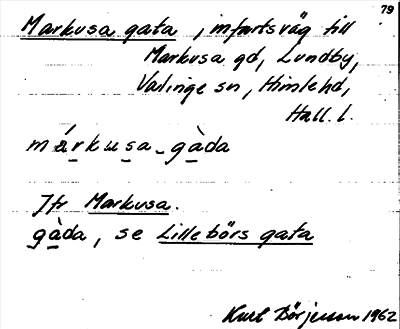 79
Markusa gata, infartsväg till
Markusa gd, Lundby,
Valinge sn, Himlehd,
Hall. l.
márkusa-gàda
Jfr Markusa.
gàda, se Lillebörs gata
Kurt Börjesson 1962